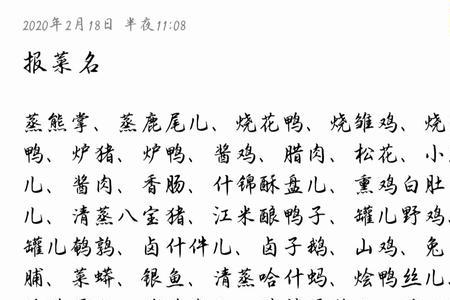 2020年2月18日 半夜11:08
报菜名
蒸熊掌、蒸鹿尾儿、烧花鸭、烧雏鸡、烧
鸭、炉猪、炉鸭、酱鸡、腊肉、松花、小
儿、酱肉、香肠、什锦酥盘儿、熏鸡白肚
儿、清蒸八宝猪、江米酿鸭子、罐儿野鸡、
罐儿鹌鹑、卤什件儿、卤子鹅、山鸡、兔
脯、菜蟒、银鱼、清蒸哈什蚂、烩鸭丝儿、